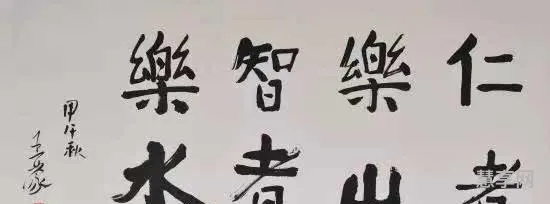 仁者
樂山
智者
樂水
甲午秋
王蒙